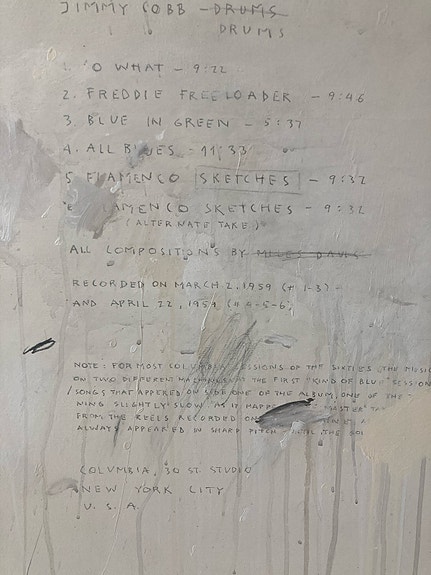 JIMMY COBB - DRUMS
DRUMS
1. O WHAT - 9:22
2. FREDDIE FREELOADER - 9:46
3. BLUE IN GREEN - 5:37
4. ALL BLUES - 11:33
5. FLAMENCO SKETCHES - 9:32
AMENCO SKETCHES - 9:32
(ALTERNATE TAKE)
ALL COMPOSITIONS BY MILES DAVIS
RECORDED ON MARCH 2, 1959 (# 1-3) -
AND APRIL 22, 1959 (# 4-5-6)
NOTE: FOR MOST COLUMBIA SESSIONS OF THE SIXTIES, THE MUSIC
ON TWO DIFFERENT MACHINES. AT THE FIRST "KIND OF BLUE" SESSION
SONGS THAT APPERED ON SIDE ONE OF THE ALBUM, ONE OF THE
NING SLIGHTLY SLOW. AS IT HAPP MASTER" TA
FROM THE REELS RECORDED ON
ALWAYS APPEARED IN SHARP PITCH - UNTIL THE
COLUMBIA, 30 ST. STUDIO
NEW YORK CITY
U. S. A.